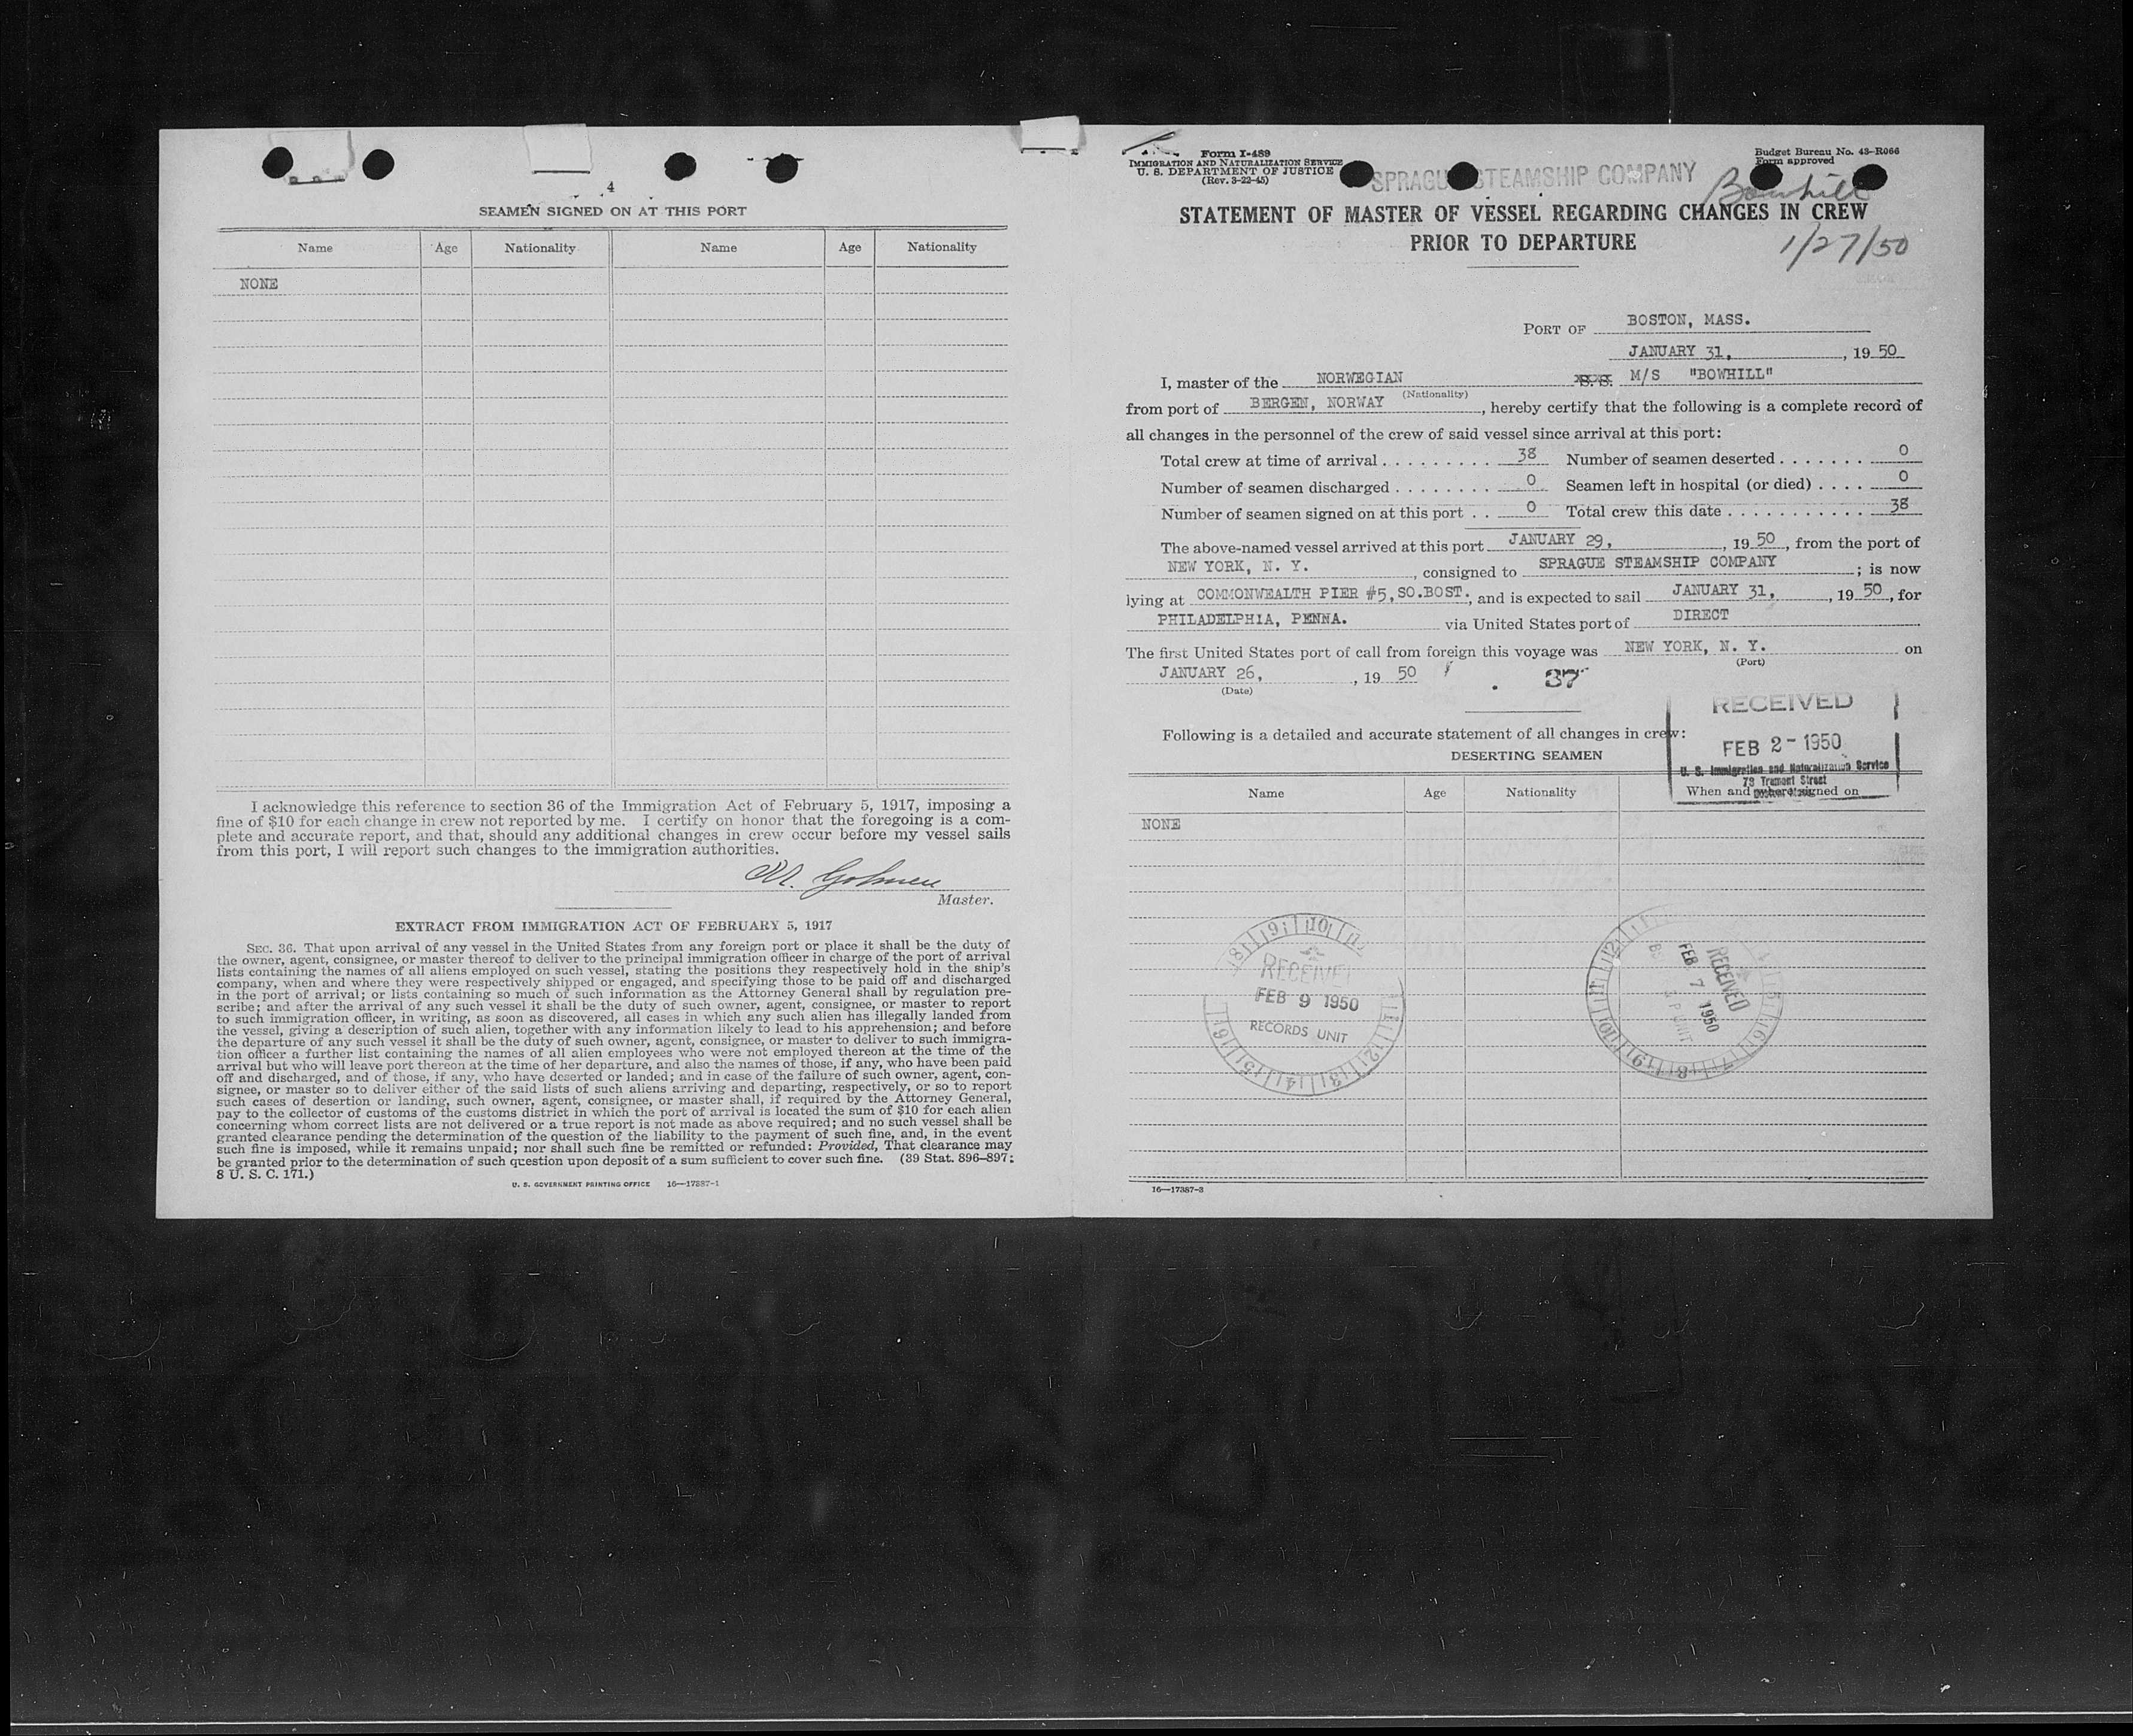 4
SEAMEN SIGNED ON AT THIS PORT
Name Age Nationality Name Age Nationality
NONE
I acknowledge this reference to section 36 of the Immigration Act of February 5, 1917, imposing a
fine of $10 for each change in crew not reported by me. I certify on honor that the foregoing is a com-
plete and accurate report, and that, should any additional changes in crew occur before my vessel sails
from this port, I will report such changes to the immigration authorities.
Master.
EXTRACT FROM IMMIGRATION ACT OF FEBRUARY 5, 1917
SEC. 36. That upon arrival of any vessel in the United States from any foreign port or place it shall be the duty of
the owner, agent, consignee, or master thereof to deliver to the principal immigration officer in charge of the port of arrival
lists containing the names of all aliens employed on such vessel, stating the positions they respectively hold in the ship's
company, when and where they were respectively shipped or engaged, and specifying those to be paid off and discharged
in the port of arrival; or lists containing so much of such information as the Attorney General shall by regulation pre-
scribe; and after the arrival of any such vessel it shall be the duty of such owner, agent, consignee, or master to report
to such immigration officer, in writing, as soon as discovered, all cases in which any such alien has illegally landed from
the vessel, giving a description of such alien, together with any information likely to lead to his apprehension; and before
the departure of any such vessel it shall be the duty of such owner, agent, consignee, or master to deliver to such immigra-
tion officer a further list containing the names of all alien employees who were not employed thereon at the time of the
arrival but who will leave port thereon at the time of her departure, and also the names of those, if any, who have been paid
off and discharged, and of those, if any, who have deserted or landed; and in case of the failure of such owner, agent, con-
signee, or master so to deliver either of the said lists of such aliens arriving and departing, respectively, or so to report
such cases of desertion or landing, such owner, agent, consignee, or master shall, if required by the Attorney General,
pay to the collector of customs of the customs district in which the port of arrival is located the sum of $10 for each alien
concerning whom correct lists are not delivered or a true report is not made as above required; and no such vessel shall be
granted clearance pending the determination of the question of the liability to the payment of such fine, and, in the event
such fine is imposed, while it remains unpaid; nor shall such fine be remitted or refunded: Provided, That clearance may
be granted prior to the determination of such question upon deposit of a sum sufficient to cover such fine. (39 Stat. 896–897;
8 U. S. C. 171.)
U. S. GOVERNMENT PRINTING OFFICE 16—17387-1
Form I-489
IMMIGRATION AND NATURALIZATION SERVICE
U. S. DEPARTMENT OF JUSTICE
(Rev. 3-22-45)
SPRAGUE STEAMSHIP COMPANY
Budget Bureau No. 43-R066
Form approved
Bowhill
STATEMENT OF MASTER OF VESSEL REGARDING CHANGES IN CREW
PRIOR TO DEPARTURE
1/27/50
PORT OF BOSTON, MASS.
JANUARY 31, , 19 50
I, master of the NORWEGIAN S.S. M/S "BOWHILL"
(Nationality)
from port of BERGEN, NORWAY , hereby certify that the following is a complete record of
all changes in the personnel of the crew of said vessel since arrival at this port:
Total crew at time of arrival . . . . . . . . . 38 Number of seamen deserted . . . . . . . 0
Number of seamen discharged . . . . . . . . 0 Seamen left in hospital (or died) . . . . 0
Number of seamen signed on at this port . . 0 Total crew this date . . . . . . . . . . . 38
The above-named vessel arrived at this port JANUARY 29, , 19 50 , from the port of
NEW YORK, N. Y. , consigned to SPRAGUE STEAMSHIP COMPANY ; is now
lying at COMMONWEALTH PIER #5, SO.BOST. , and is expected to sail JANUARY 31, , 19 50 , for
PHILADELPHIA, PENNA. via United States port of DIRECT
The first United States port of call from foreign this voyage was NEW YORK, N. Y. on
(Port)
JANUARY 26, , 19 50
(Date)
37
RECEIVED
FEB 2 - 1950
U. S. Immigration and Naturalization Service
73 Tremont Street
Following is a detailed and accurate statement of all changes in crew:
DESERTING SEAMEN
Name Age Nationality When and where signed on
NONE
RECEIVED
FEB 9 1950
RECORDS UNIT
RECEIVED
FEB 7 1950
16—17387-3